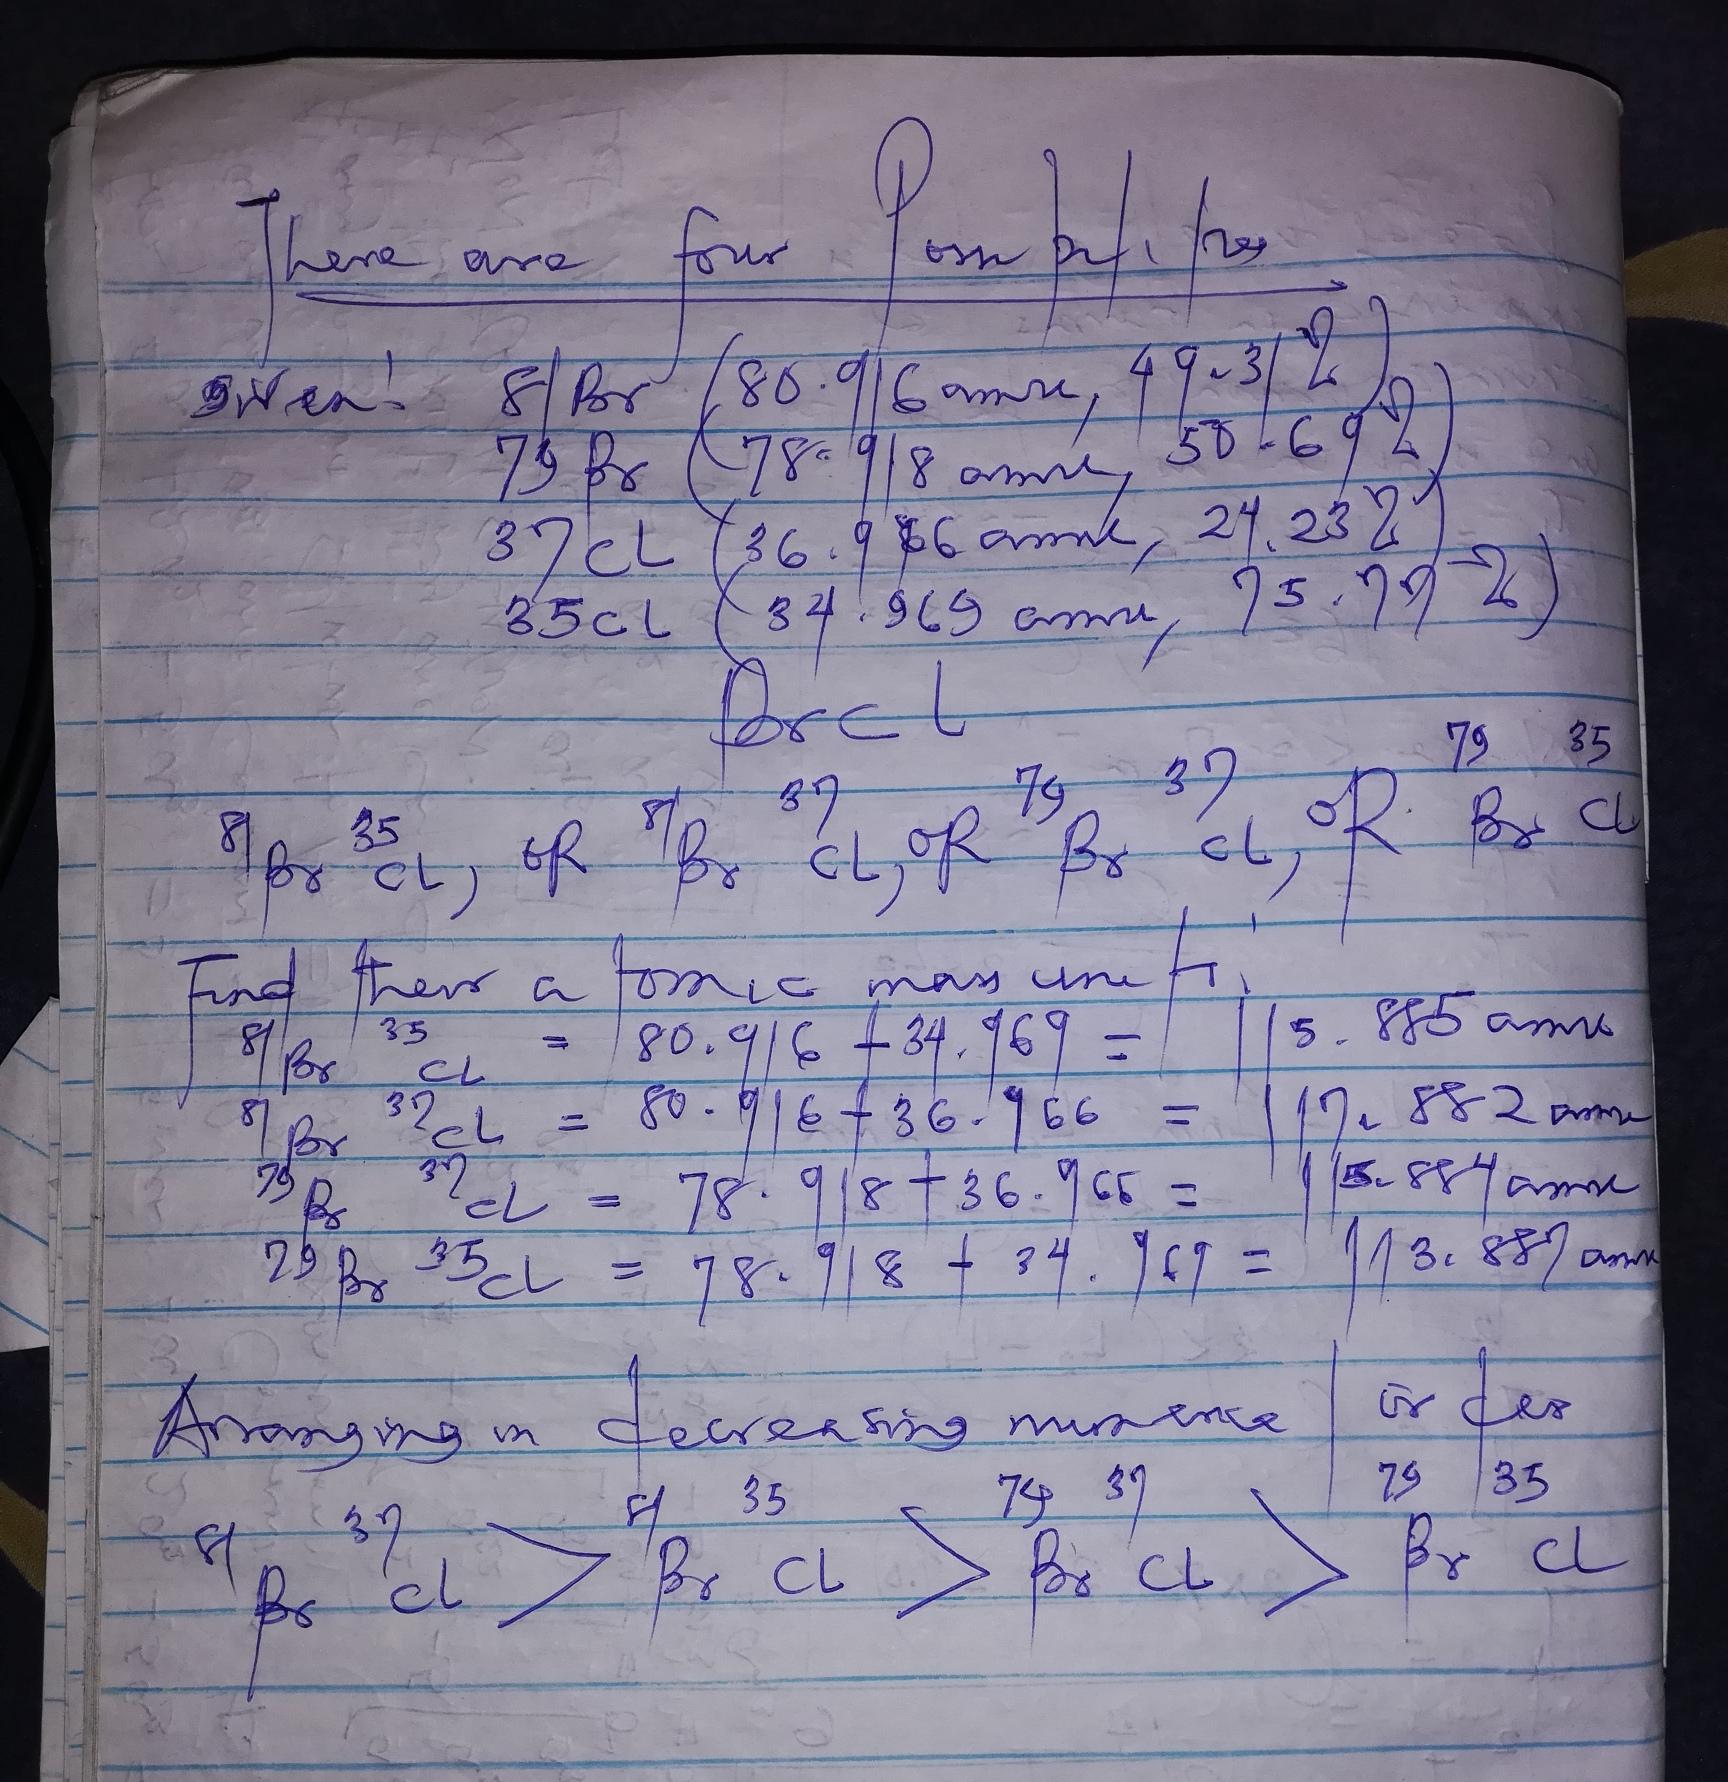 There are four Possibilities
given: 81Br (80.916 amu, 49.31%)
79Br (78.918 amu, 50.69%)
37CL (36.966 amu, 24.23%)
35CL (34.969 amu, 75.77%)
BrCL
81Br 35CL, OR 81Br 37CL, OR 79Br 37CL, OR 79Br 35CL
Find their atomic mass unit:
81Br 35CL = 80.916 + 34.969 = 115.885 amu
81Br 37CL = 80.916 + 36.966 = 117.882 amu
79Br 37CL = 78.918 + 36.966 = 115.884 amu
79Br 35CL = 78.918 + 34.969 = 113.887 amu
Arranging in decreasing order
81Br 37CL > 81Br 35CL > 79Br 37CL > 79Br 35CL